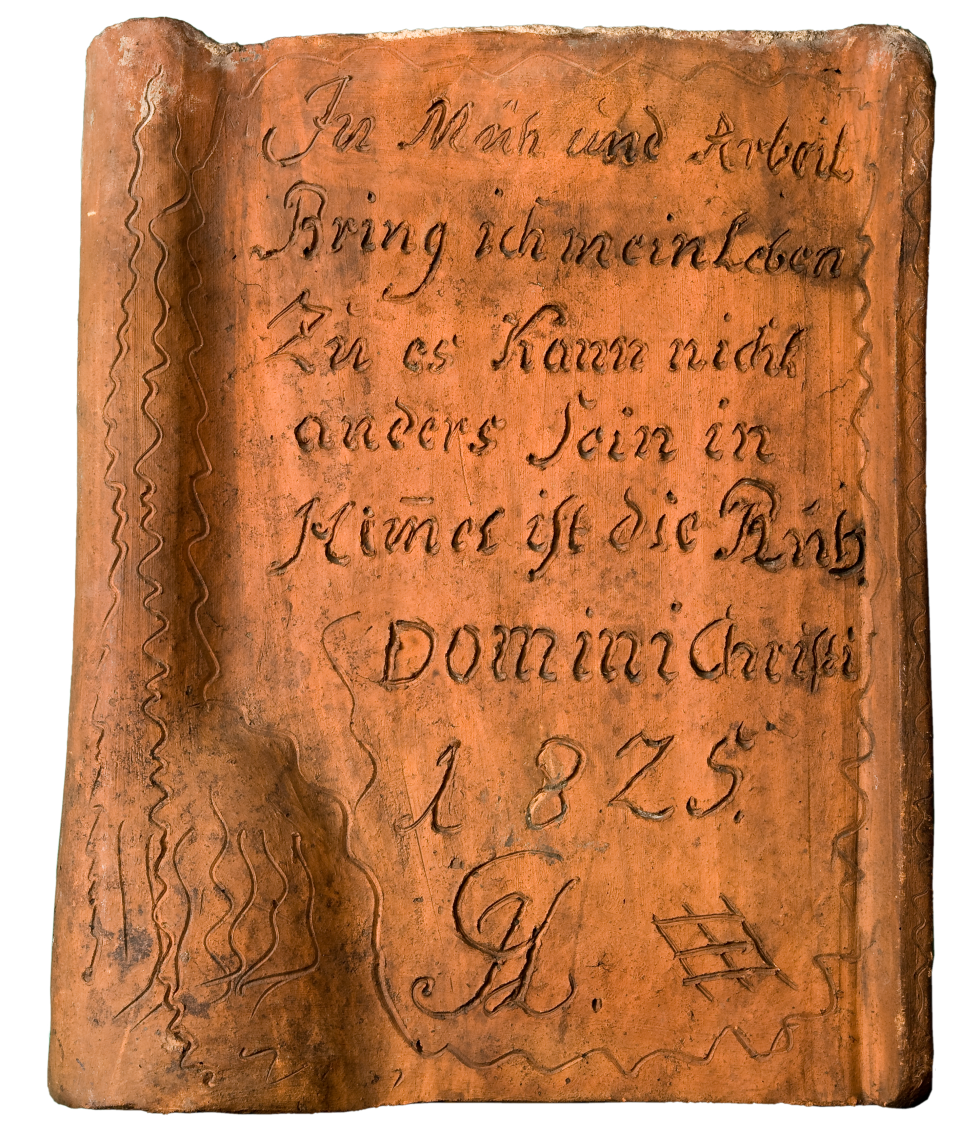 In Müh und Arbeit
Bring ich mein Leben
Zu es Kann nicht
anders sein in
Him̅el ist die Rüh
Domini Christi
1825.